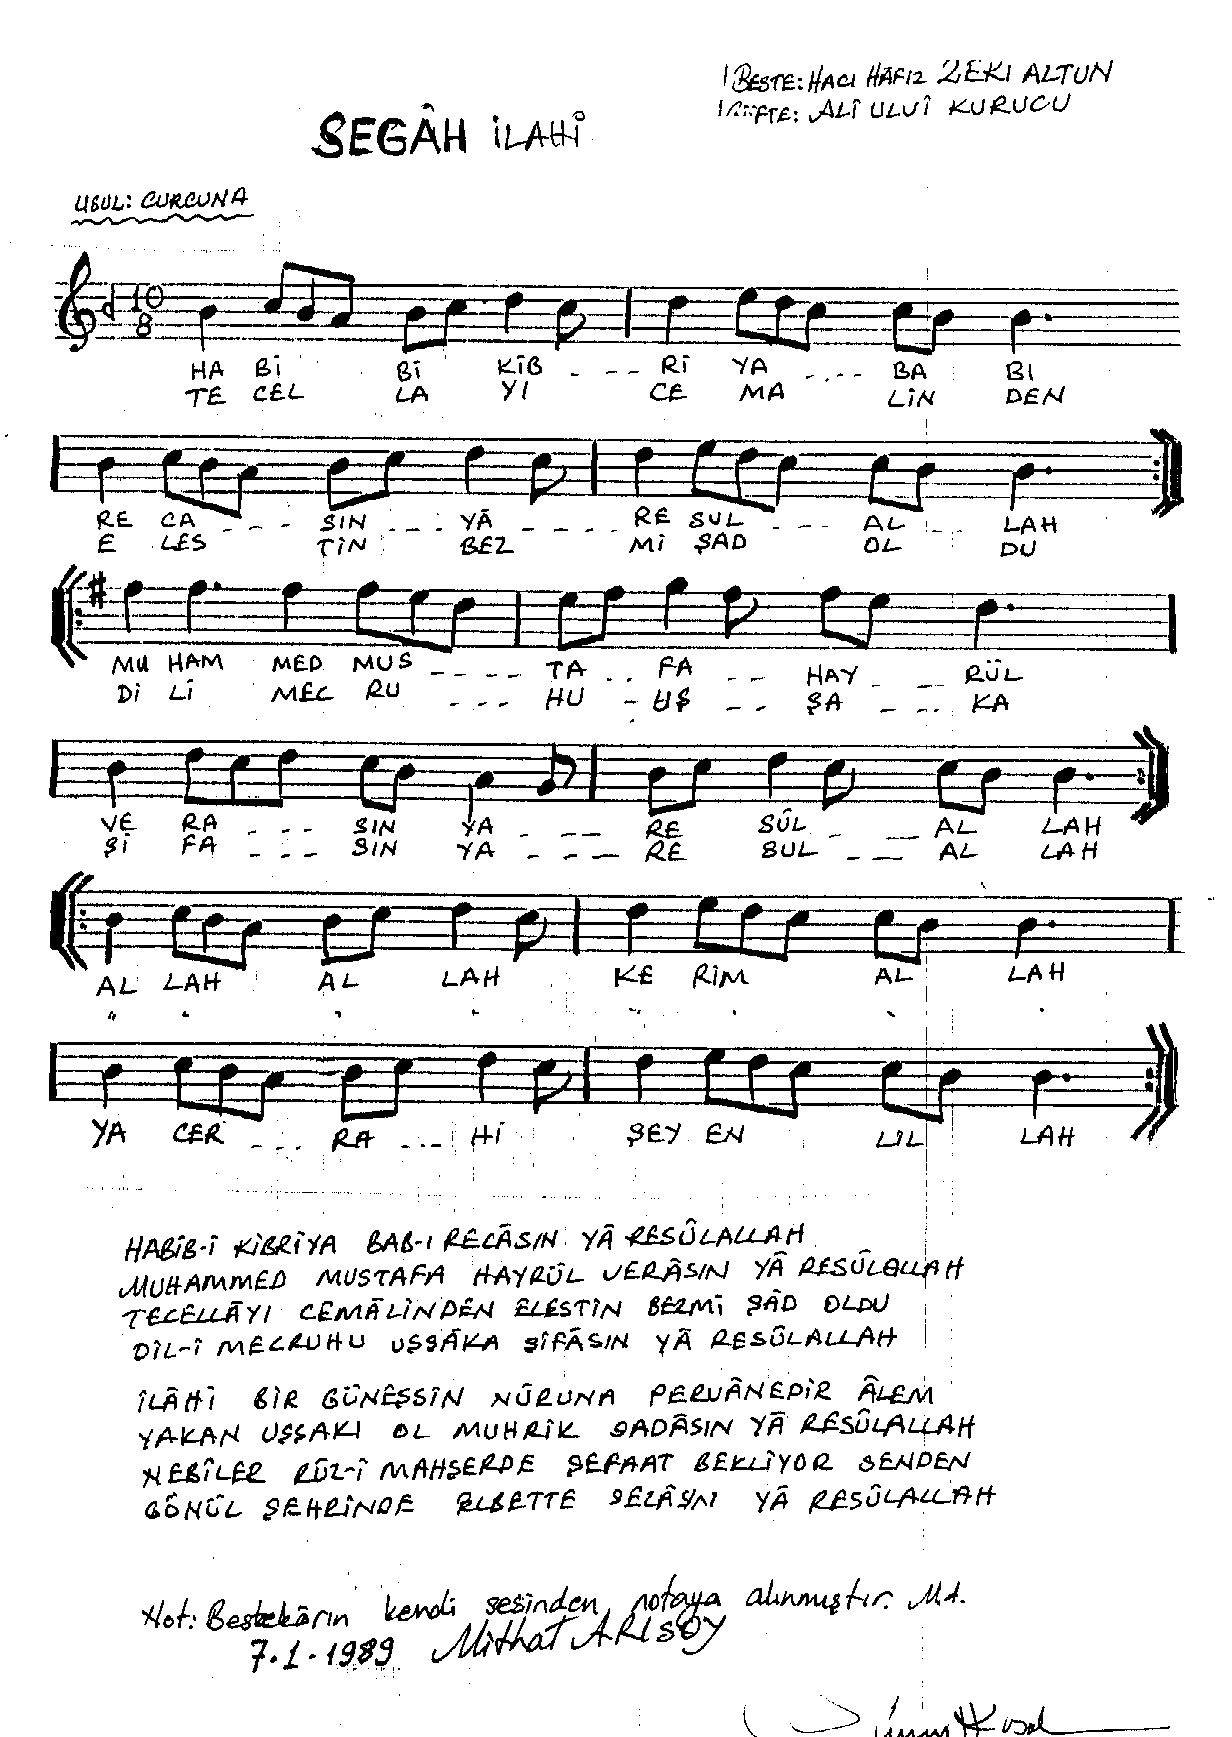 BESTE: HACI HÂFIZ ZEKI ALTUN
GÜFTE: ALİ ULVİ KURUCU
SEGÂH İLAHİ
USUL: CURCUNA
10
8
HA Bİ Bİ KİB - - - - Rİ YA - - - - - BA BI
TE CEL LA YI CE MA LİN DEN
RE CA - - - - SIN - - - YÂ - - - - RE SUL - - - - AL - - LAH
E LES TİN BEZ Mİ ŞAD OL DU
MU HAM MED MUS - - - - TA - - FA - - HAY - - RÜL
Dİ Lİ MEC RU - - - HU - UŞ - - ŞA - - - KA
VE RA - - - SIN YA - - - RE SÛL - - AL LAH
Şİ FA - - - SIN YA - - - RE SUL - - AL LAH
AL LAH AL LAH KE RİM AL LAH
YA CER - - - RA - - - Hİ ŞEY EN LİL LAH
HABİB-İ KİBRİYA BAB-I RECÂSIN YÂ RESÛLALLAH
MUHAMMED MUSTAFA HAYRÜL VERÂSIN YÂ RESÛLALLAH
TECELLÂYI CEMÂLİNDEN ELESTİN BEZMİ ŞÂD OLDU
DİL-İ MECRUHU UŞŞÂKA ŞİFÂSIN YÂ RESÛLALLAH
İLÂHİ BİR GÜNEŞSİN NÛRUNA PERVÂNEDİR ÂLEM
YAKAN UŞŞAKI OL MUHRİK SADÂSIN YÂ RESÛLALLAH
NEBİLER RÛZ-İ MAHŞERDE ŞEFAAT BEKLİYOR SENDEN
GÖNÜL ŞEHRİNDE ELBETTE SELÂSIN YÂ RESÛLALLAH
Not: Bestekârın kendi sesinden notaya alınmıştır. M.A.
7.1.1989 Mithat ARISOY